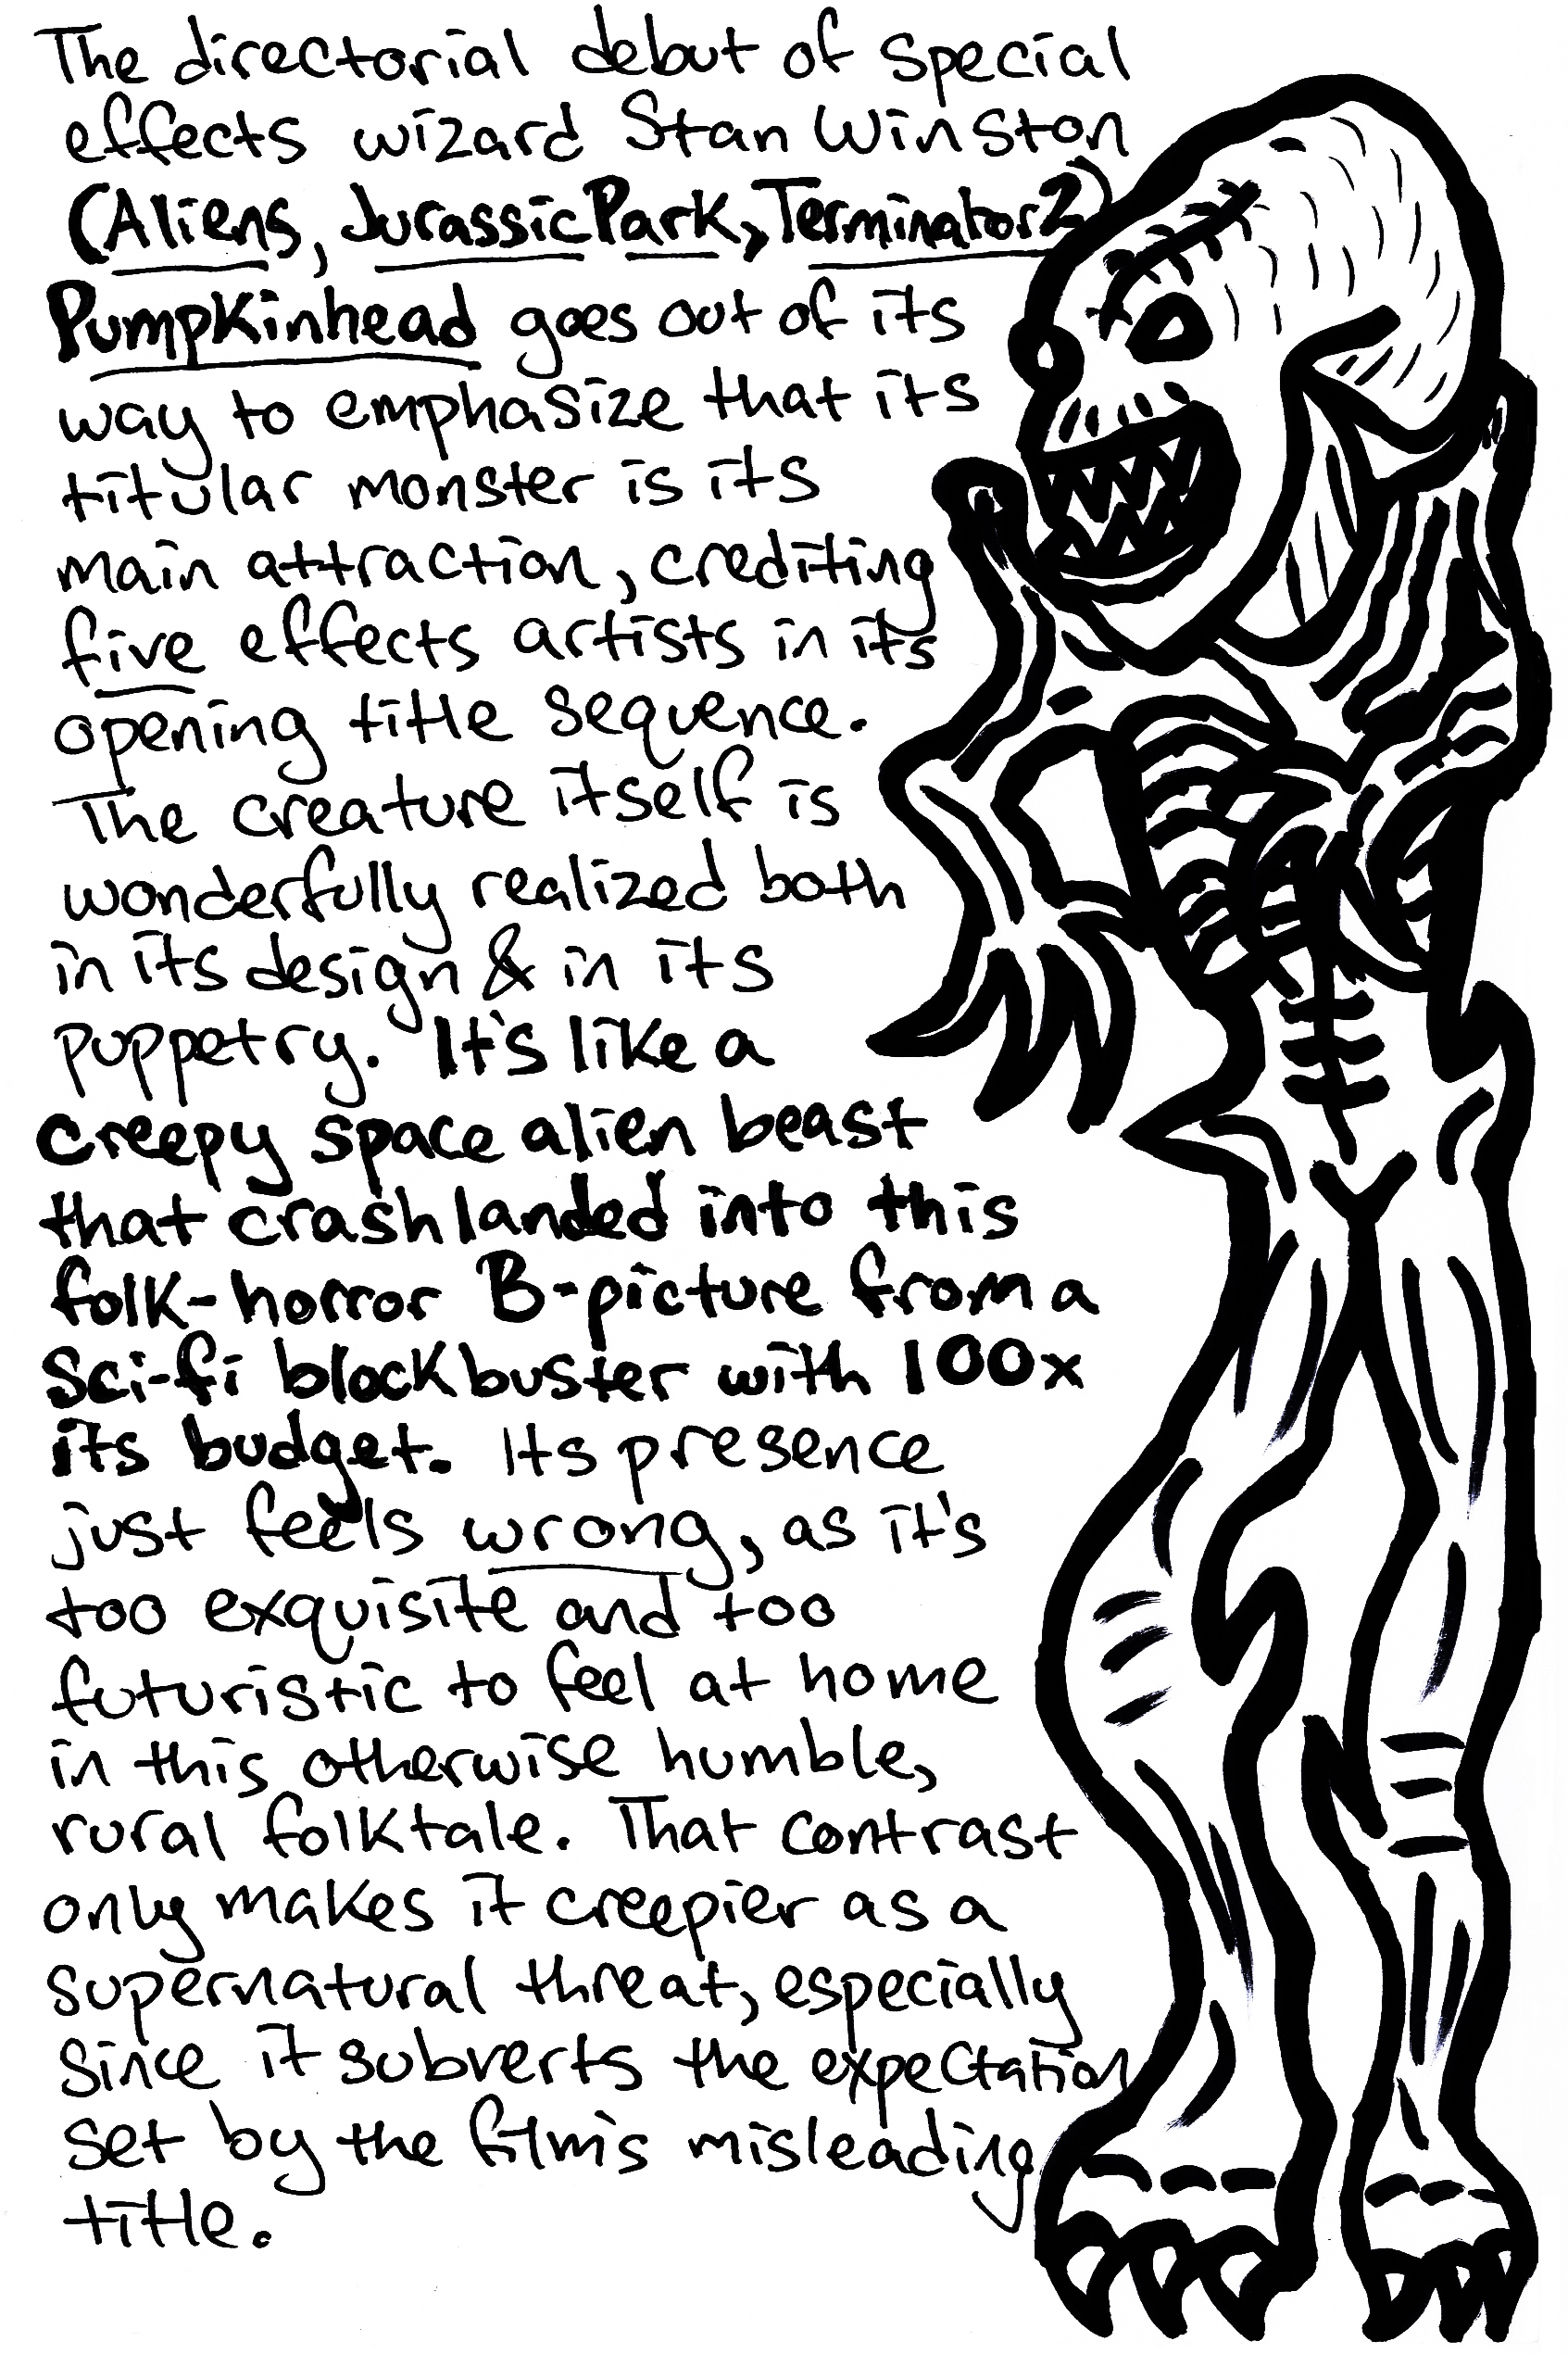 The directorial debut of special
effects wizard Stan Winston
(Aliens, Jurassic Park, Terminator 2)
Pumpkinhead goes out of its
way to emphasize that its
titular monster is its
main attraction, crediting
five effects artists in its
opening title sequence.
The creature itself is
wonderfully realized both
in its design & in its
puppetry. It's like a
creepy space alien beast
that crash landed into this
folk-horror B-picture from a
Sci-fi blockbuster with 100x
its budget. Its presence
just feels wrong, as it's
too exquisite and too
futuristic to feel at home
in this otherwise humble,
rural folktale. That contrast
only makes it creepier as a
supernatural threat, especially
since it subverts the expectation
set by the film's misleading
title.